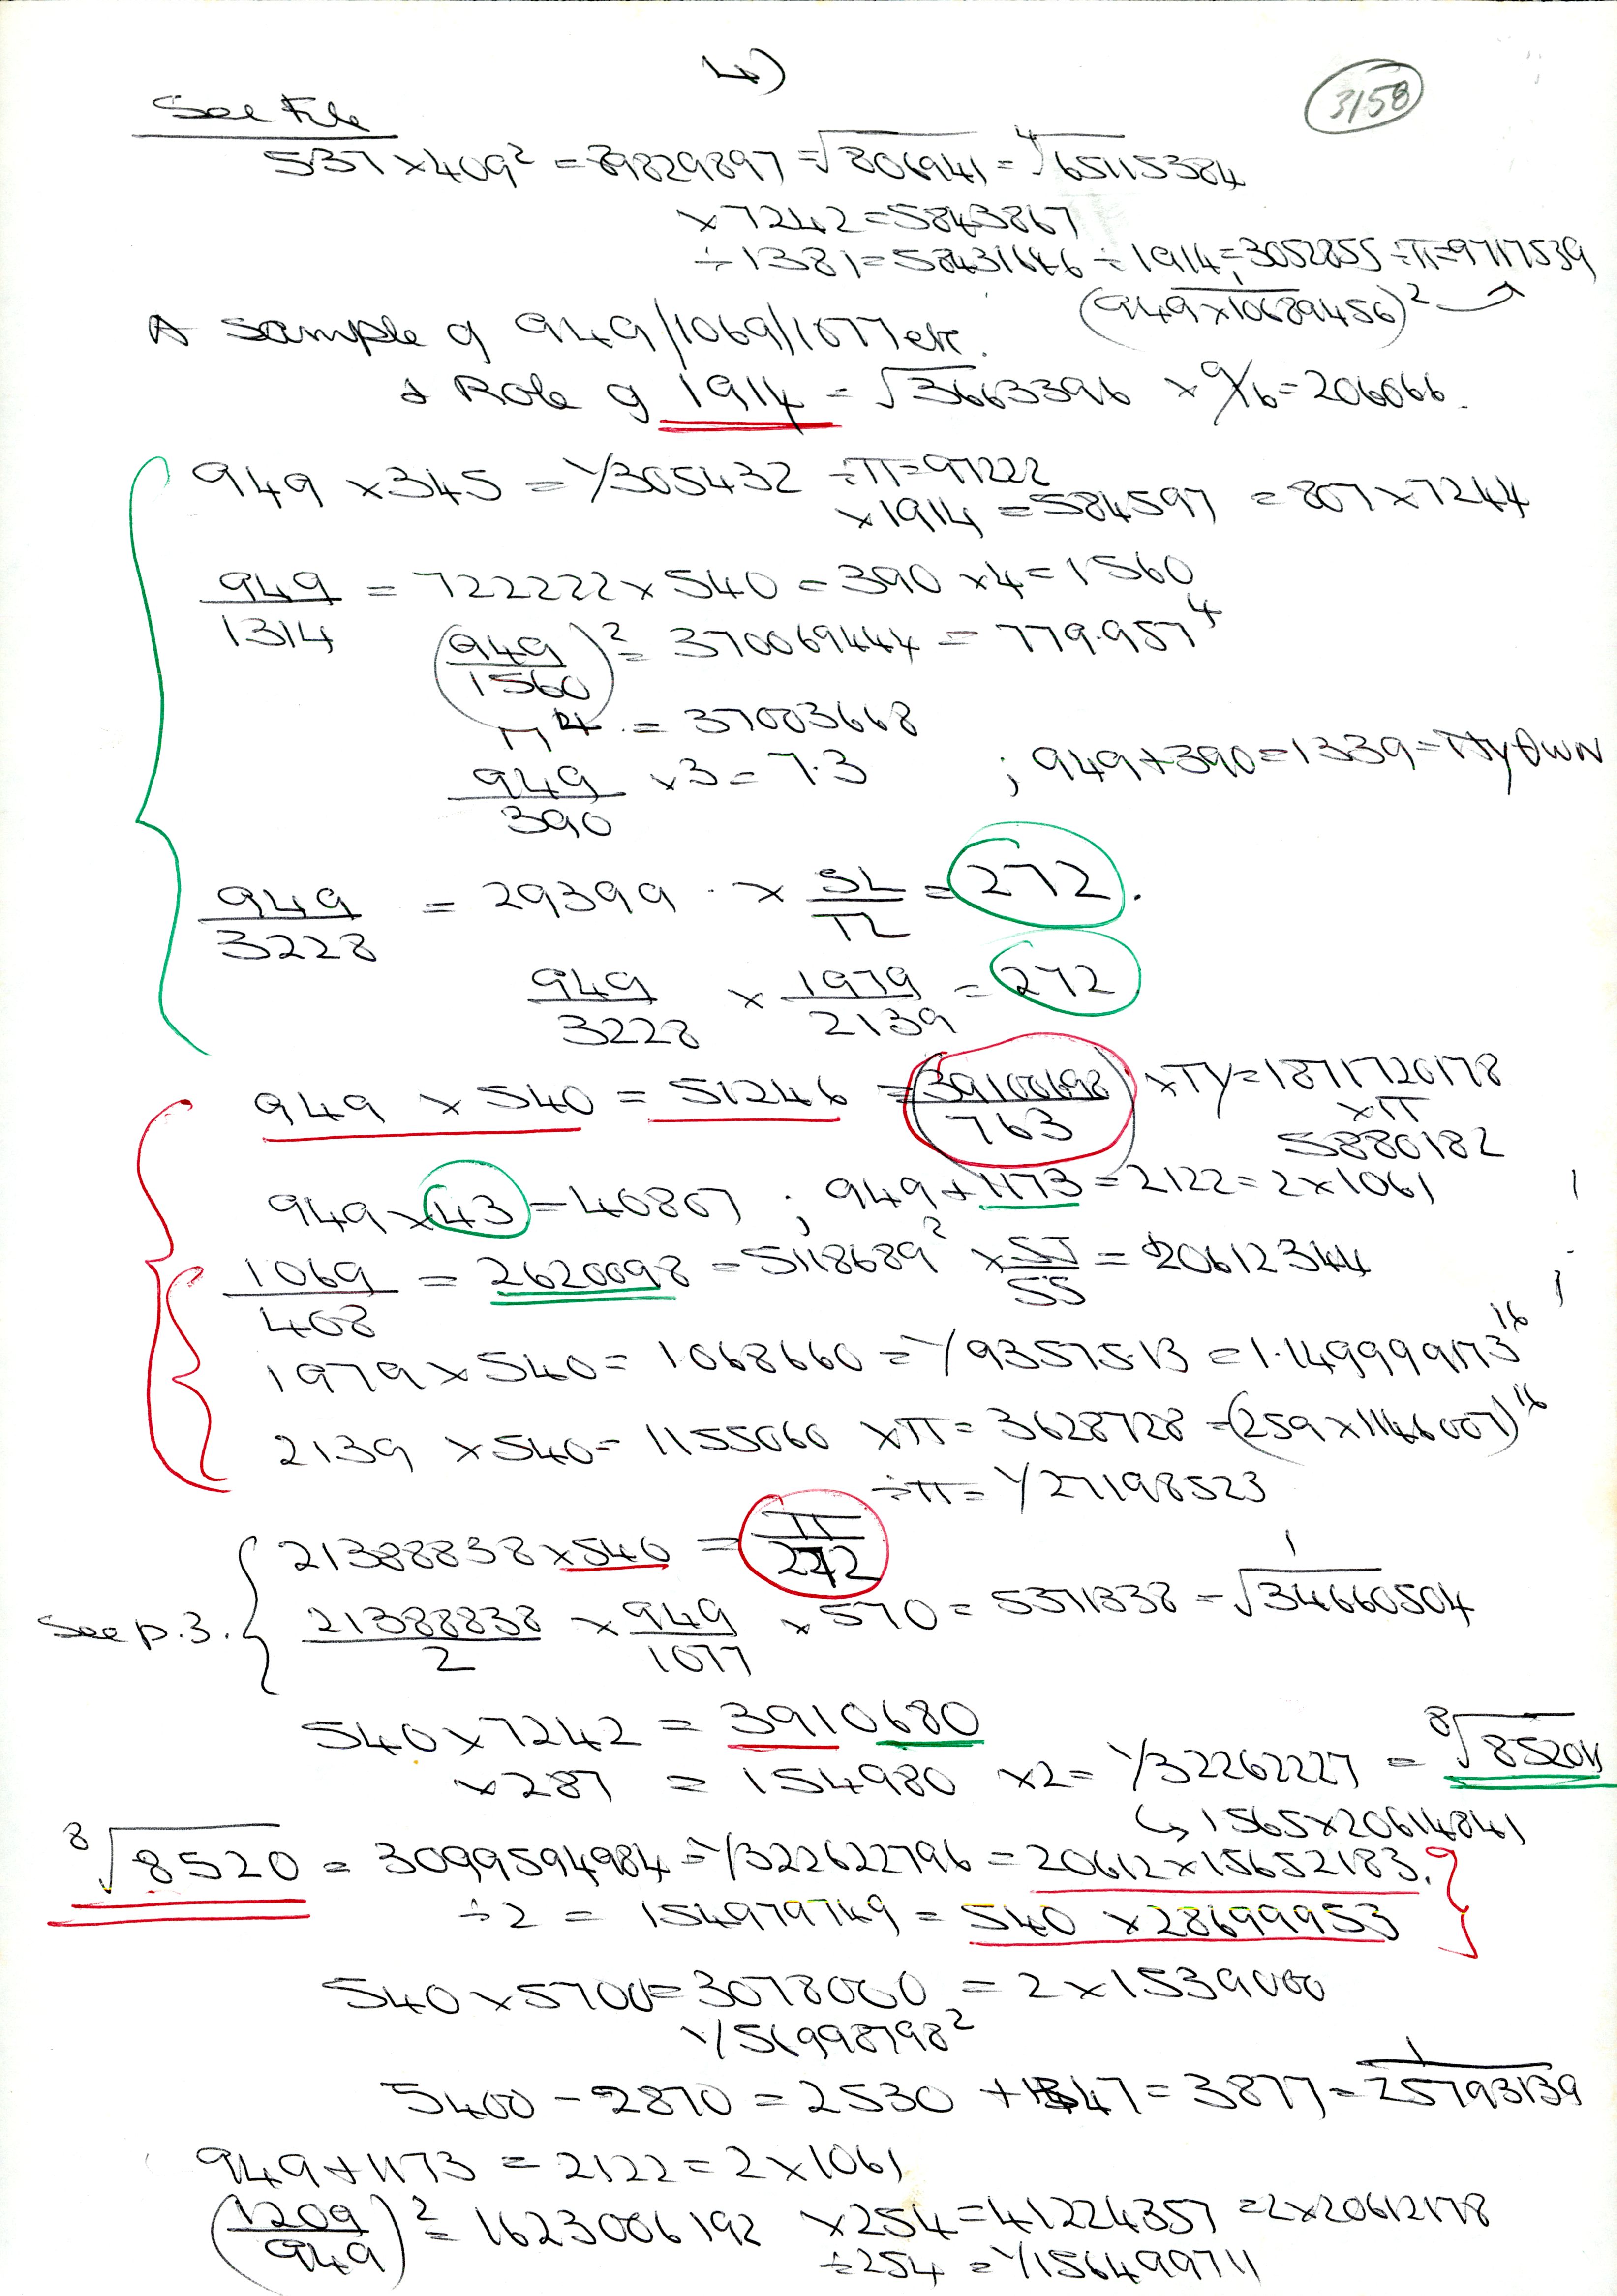 4)
3158
See File
537 × 409² = 89829897 = √806941 = ⁴√65115384
× 7242 = 5843867
÷ 1381 = 58431646 ÷ 1914 = 3052855 ÷ π = 9717539
1/(949 × 10689456)²
A sample of 949/1069/1077 etc.
& Role of 1914 = √3663396 × 9/16 = 206066.
949 × 345 = 1/305432 ÷ π = 97222
× 1914 = 584597 = 807 × 7244
949/1314 = 722222 × 540 = 390 × 4 = 1560
(949/1560)² = 370069444 = 779.957⁴
" ⁴ = 37003668
949/390 × 3 = 7.3 ; 949 + 390 = 1339 = TTy OWN
949/3228 = 29399 × SL/TL = 272.
949/3228 × 1979/2139 = 272
949 × 540 = 51246 = (39100698/763) × TY = 1871720178
× π
5880182
949 × 43 = 40807 ; 949 + 1173 = 2122 = 2 × 1061
1069/408 = 2620098 = 5118689² × SJ/SS = 20612344
1979 × 540 = 1068660 = 1/9357513 = 1.149999173¹⁶
2139 × 540 = 1155060 × π = 3628728 = (259 × 1146007)¹⁶
÷ π = 1/27198523
21388838 × 540 = π/272
See p.3. 21388838/2 × 949/1077 × 570 = 5371338 = 1/√34660504
540 × 7242 = 3910680
× 287 = 154980 × 2 = 1/32262227 = ⁸√8520
↳ 1565 × 20614841
⁸√8520 = 3099594984 = 1/322622796 = 20612 × 15652183.
÷ 2 = 154979749 = 540 × 28699953
540 × 5700 = 3078000 = 2 × 1539000
1/56998798²
5400 - 2870 = 2530 + 1347 = 3877 = 1/25793139
949 + 1173 = 2122 = 2 × 1061
(1209/949)² = 1623006192 × 254 = 41224357 = 2 × 20612178
÷ 254 = 1/156499711